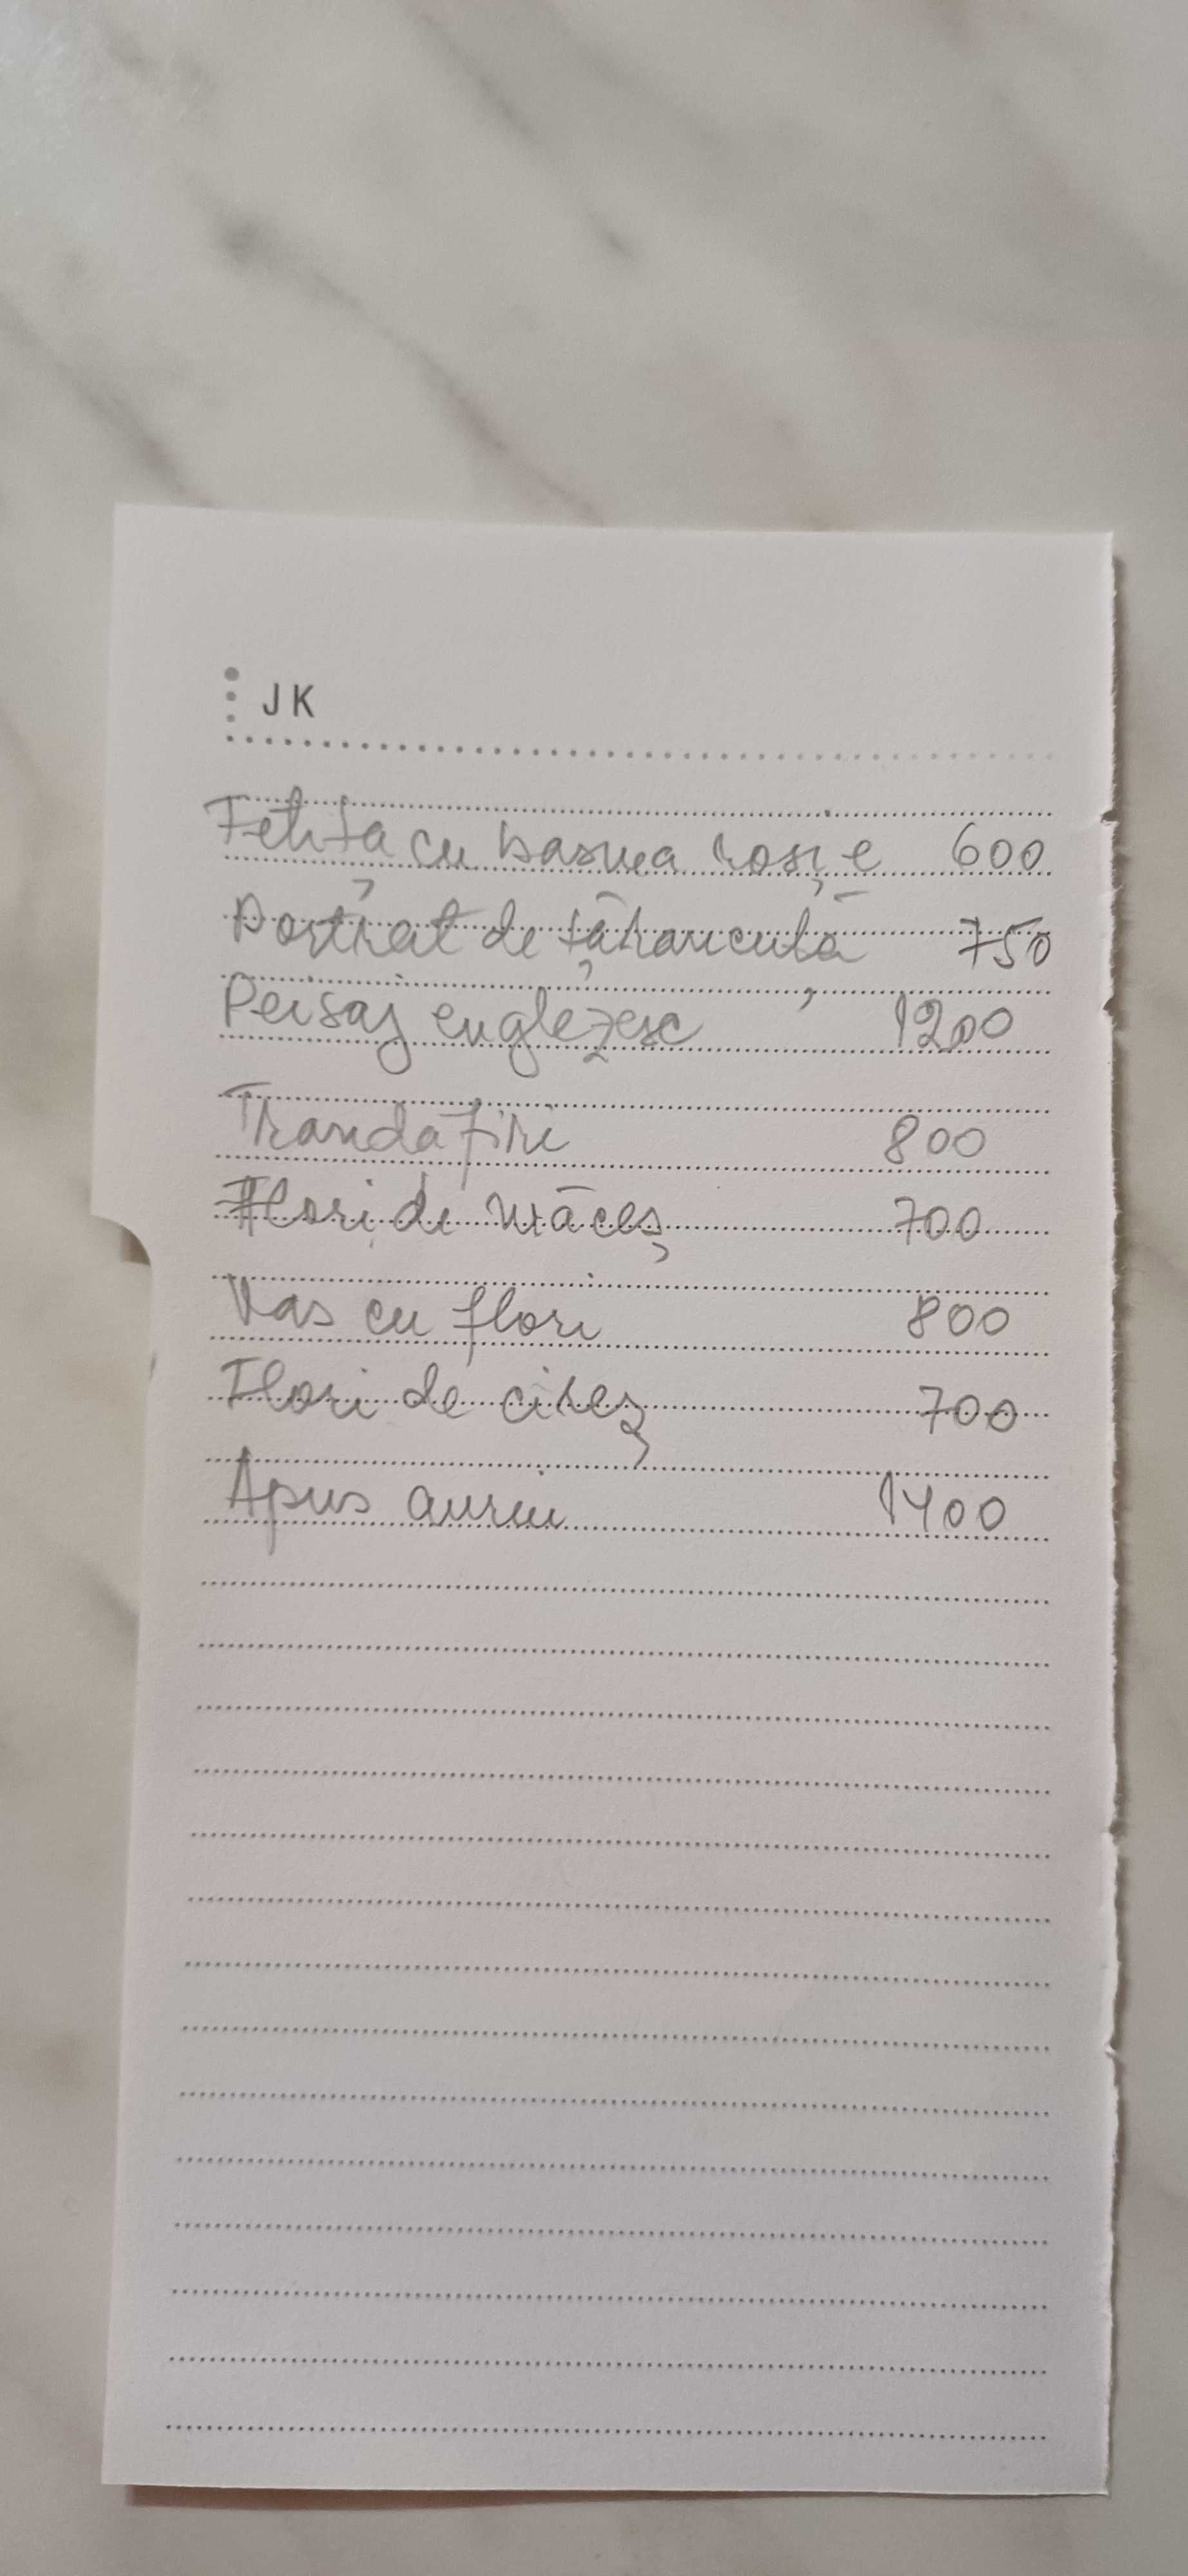 JK
Fetița cu basma roșie 600
Portret de țărăncuță 750
Peisaj englezesc 1200
Trandafiri 800
Flori de măceș 700
Vas cu flori 800
Flori de cireș 700
Apus auriu 1400